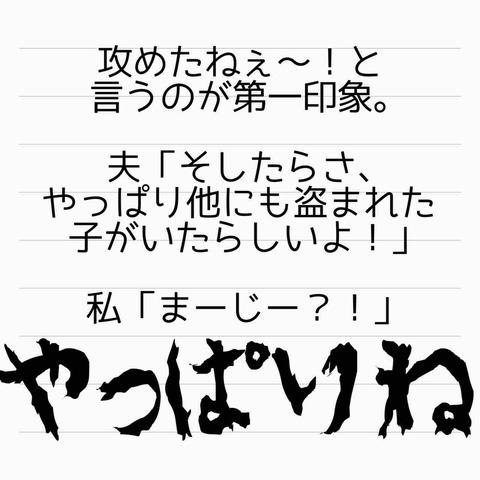 攻めたねぇ～！と
言うのが第一印象。
夫「そしたらさ、
やっぱり他にも盗まれた
子がいたらしいよ！」
私「まーじー？！」
やっぱりね